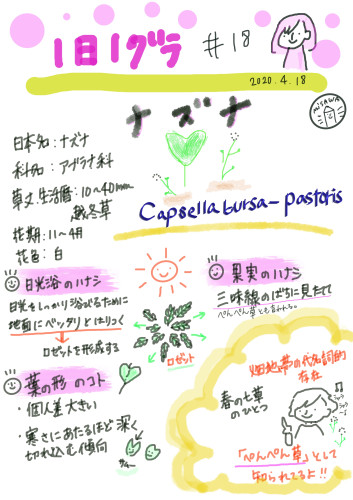 1日1グラ #18
2020.4.18
MISAWA
ナズナ
Capsella bursa-pastoris
日本名:ナズナ
科名:アブラナ科
草丈、生活暦:10~40mm
越冬草
花期:11~4月
花色:白
日光浴のハナシ
日光をしっかり浴びるために
地面にベッタリとはりつく
→ロゼットを形成する
ロゼット
果実のハナシ
三味線のばちに見たて
ぺんぺん草とも言われる。
葉の形のコト
・個人差大きい
・寒さにあたるほど深く
切れ込む傾向
畑地帯の代名詞的
存在
春の七草
のひとつ
「ぺんぺん草」として
知られてるよ!!